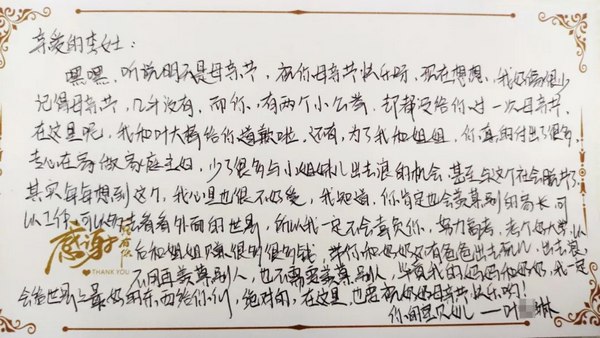 亲爱的李女士:
嘿嘿,听说明天是母亲节,祝你母亲节快乐呀,现在想想,我好像很少
记得母亲节,几乎没有,而你,有两个小公举,却都没给你过一次母亲节,
在这里呢,我和叶大桥给你道歉啦,还有,为了我和姐姐,你真的付出了很多,
专心在家做家庭主妇,少了很多与小姐妹儿出去浪的机会,甚至与这个社会脱节了,
其实每每想到这个,我心里也很不好受,我知道,你肯定也会羡慕别的家长,可
以工作,可以看看外面的世界,所以我一定不会辜负你,努力高考,考个好大学,以
感谢 有你 后和姐姐赚很多很多钱,带你和奶奶还有爸爸出去玩儿,出去浪,
THANK YOU 不用再羡慕别人,也不需要羡慕别人,当我的妈妈和奶奶,我一定
会给世界上最好的东西给你们,绝对的,在这里,也要祝奶奶母亲节快乐哟!
你的宝贝儿——叶 琳